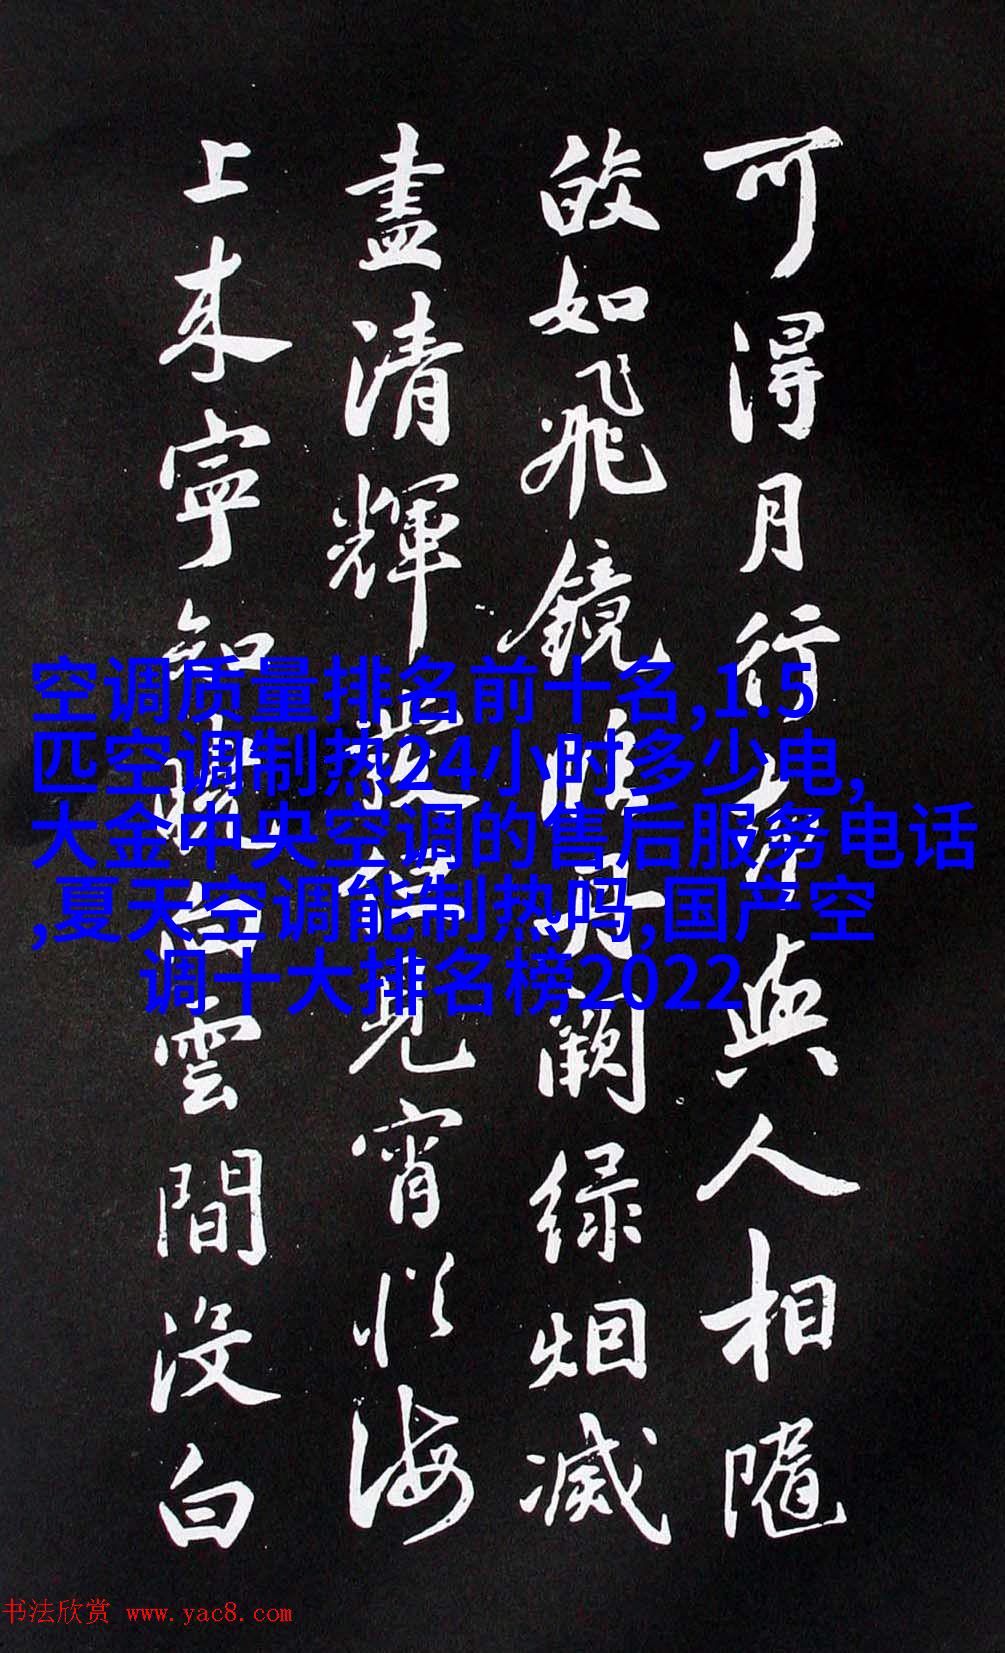 可得月行却與人相隨
皎如飛鏡臨丹闕緑烟滅
盡清輝發但見宵從海
上来寧知曉向雲間没白
空调质量排名前十名,1.5
匹空调制热24小时多少电,
大金中央空调的售后服务电话
,夏天空调能制热吗,国产空
调十大排名榜2022
书法欣赏 www.yac8.com